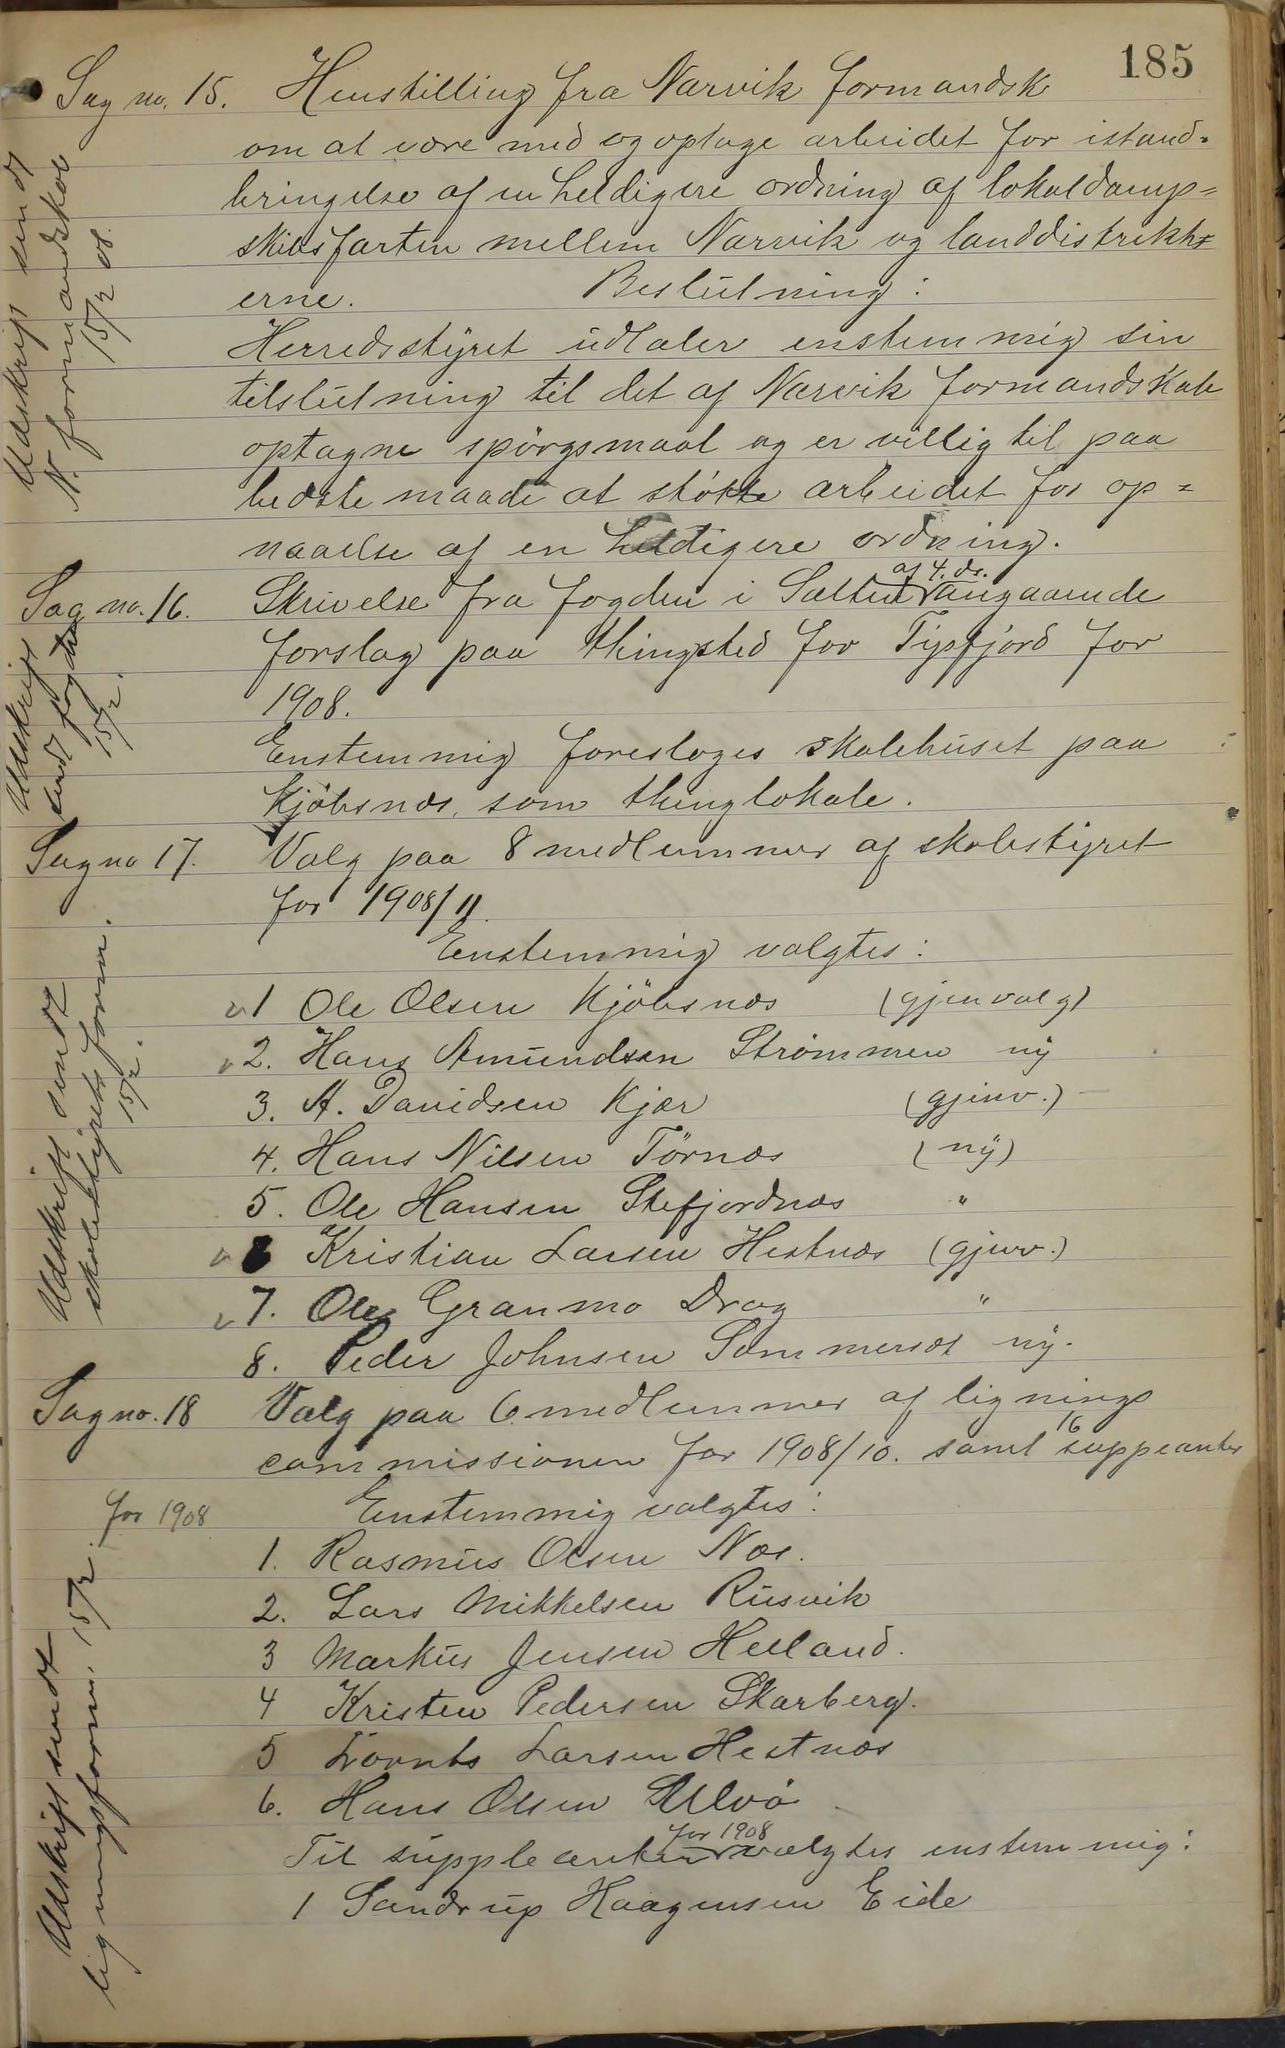 185
Sag no. 15. Henstilling fra Narvik formandsk
om at være med og optage arbeidet for istand=
bringelse af en heldigere ordning af lokaldamp=
skibsfarten mellem Narvik og landdistrikt=
erne. Beslutning:
Herredsstyret udtaler enstemmig sin
tilslutning til det af Narvik formandskab
optagne spörgsmaal og er villig til paa
bedste maade at støtte arbeidet for op=
naaelse af en heldigere ordning.
Udskrift sendt
N. formandskab
15/2 08.
Sag no. 16. Skrivelse fra fogden i Salten af 4. ds. angaaende
forslag paa thingsted for Tysfjord for
1908.
Enstemmig foresloges skolehuset paa
Kjöbsnæs som thinglokale.
Udskrift
sendt fogden
15/2.
Sag no 17. Valg paa 8 medlemmer af skolestyret
for 1908/11.
Enstemmig valgtes:
1 Ole Olsen Kjöbsnæs (gjenvalg)
2. Hans Amundsen Strømmen ny
3. A. Davidsen Kjær (gjenv.)
4. Hans Nilsen Törnæs (ny)
5. Ole Hansen Stefjordnæs "
6 Kristian Larsen Hestnæs (gjenv.)
7. Ole Granmo Drag "
8. Peder Johnsen Sommerset ny.
Udskrift sendt
skolestyrets form.
15/2.
Sag no. 18 Valg paa 6 medlemmer af lignings
commissionen for 1908/10. samt 16 suppeanter
for 1908 Enstemmig valgtes:
1. Rasmus Olsen Næs.
2. Lars Mikkelsen Rusvik
3 Markus Jensen Helland.
4 Kristen Pedersen Skarberg.
5 Larsen Hestnæs
6. Hans Olsen Ulvö
Til suppleanter for 1908 valgtes enstemmig:
1 Sandrup Haagensen Eide
Udskrift sendt
ligningsform. 15/2.